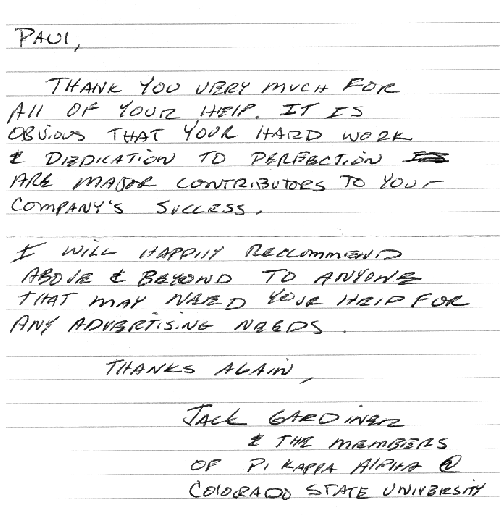 PAUL,
THANK YOU VERY MUCH FOR
All OF YOUR HELP. IT IS
OBVIOUS THAT YOUR HARD WORK
& DEDICATION TO PERFECTION
ARE MAJOR CONTRIBUTORS TO YOUR
COMPANY'S SUCCESS.
I WILL HAPPILY RECOMMEND
ABOVE & BEYOND TO ANYONE
THAT MAY NEED YOUR HELP FOR
ANY ADVERTISING NEEDS.
THANKS AGAIN,
JACK GARDINER
& THE MEMBERS
OF PI KAPPA ALPHA @
COLORADO STATE UNIVERSITY